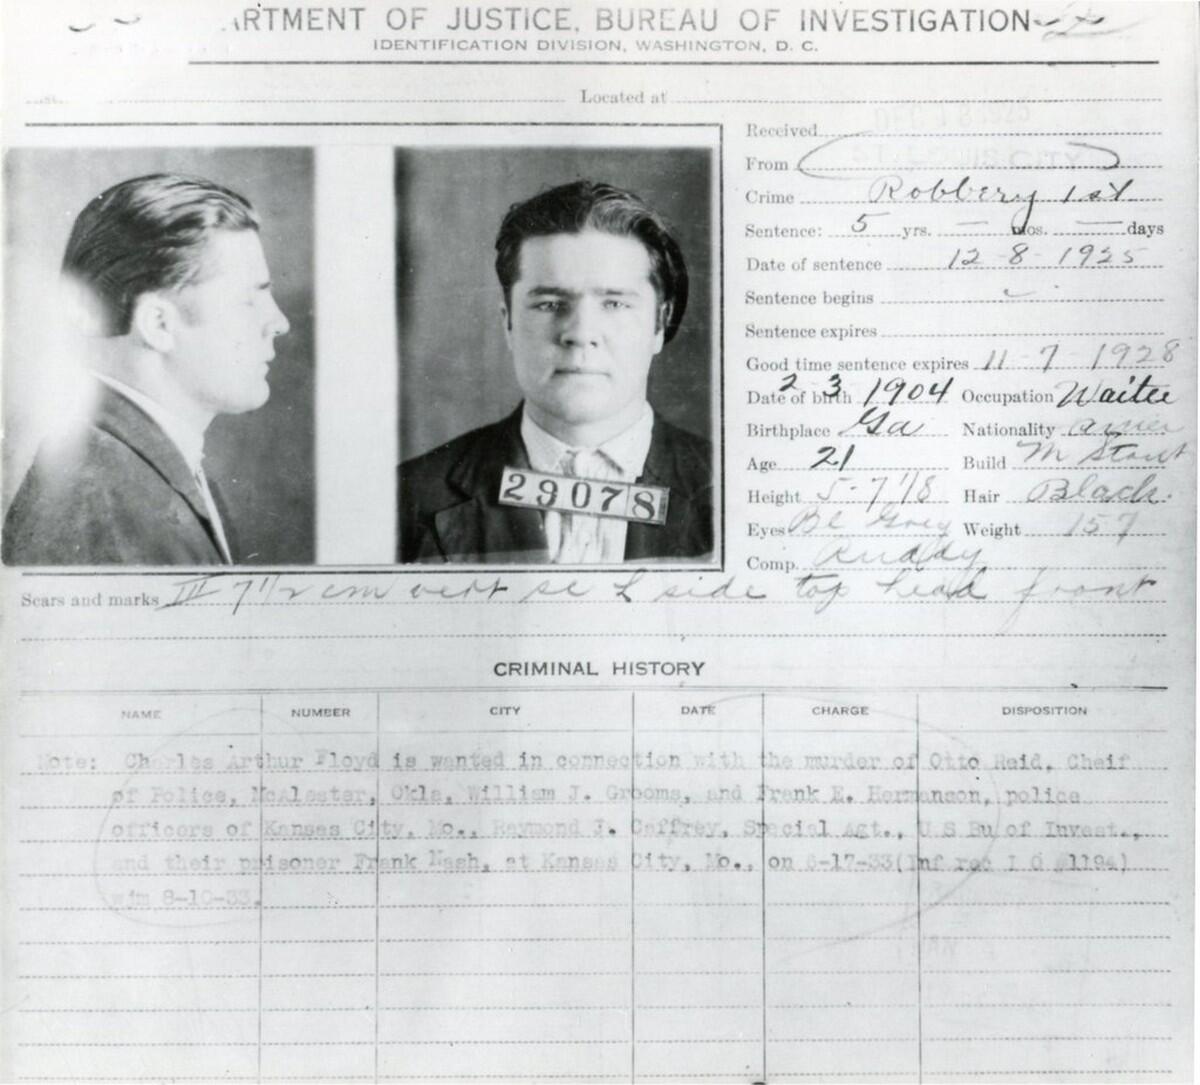 ARTMENT OF JUSTICE, BUREAU OF INVESTIGATION
IDENTIFICATION DIVISION, WASHINGTON, D. C.
Located at
Received
From
Crime Robbery 1st
Sentence: 5 yrs. — mos. — days
Date of sentence 12-8-1925
Sentence begins
Sentence expires
Good time sentence expires 11-7-1928
Date of birth 2-3 1904 Occupation Waiter
Birthplace Ga Nationality Amer
Age 21 Build M Stout
Height 5-7 1/8 Hair Black
Eyes Bl Grey Weight 157
Comp. Ruddy
29078
Scars and marks III 7 1/2 cm vert sc L side top head front
CRIMINAL HISTORY
NAME NUMBER CITY DATE CHARGE DISPOSITION
Note: Charles Arthur Floyd is wanted in connection with the murder of Otto Reid, Cheif
of Police, McAlester, Okla, William J. Grooms, and Frank E. Hermanson, police
officers of Kansas City, Mo., Raymond J. Caffrey, Special Agt., U S Bu of Invest.,
and their prisoner Frank Nash, at Kansas City, Mo., on 6-17-33(Inf rec I O #1194)
wjm 8-10-33.